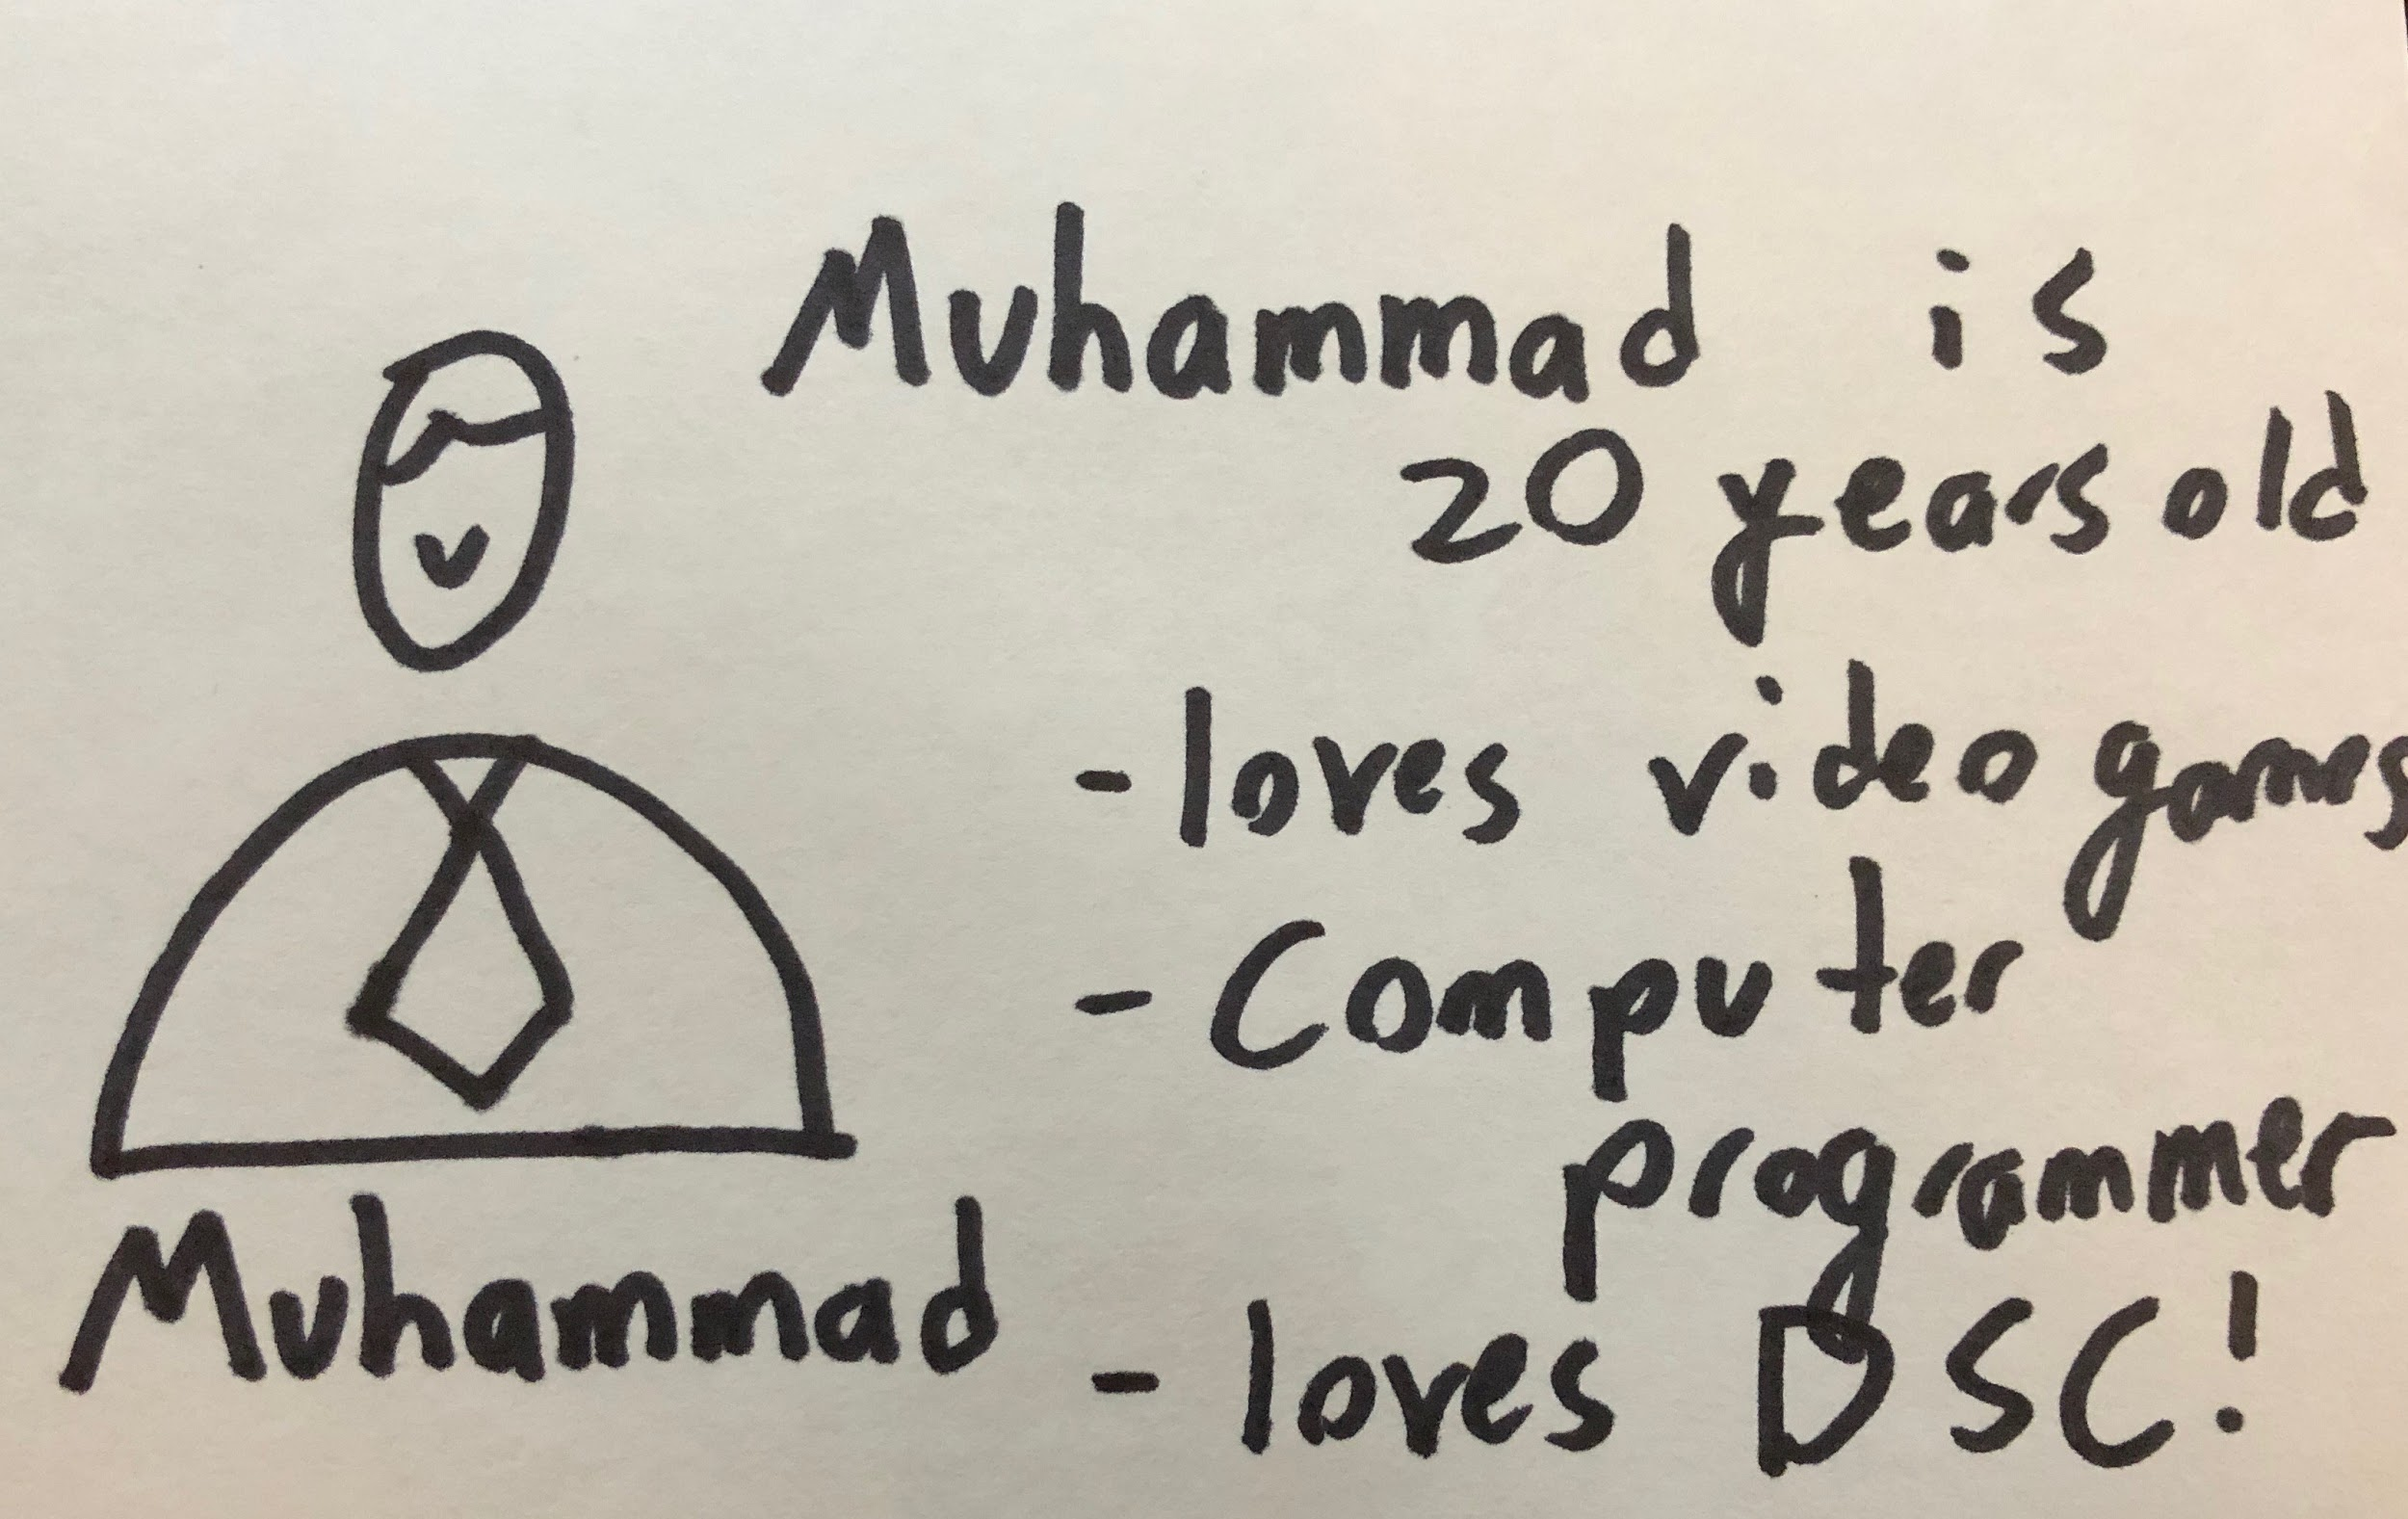 Muhammad is
20 years old
- loves video games
- Computer
programmer
- loves DSC!
Muhammad